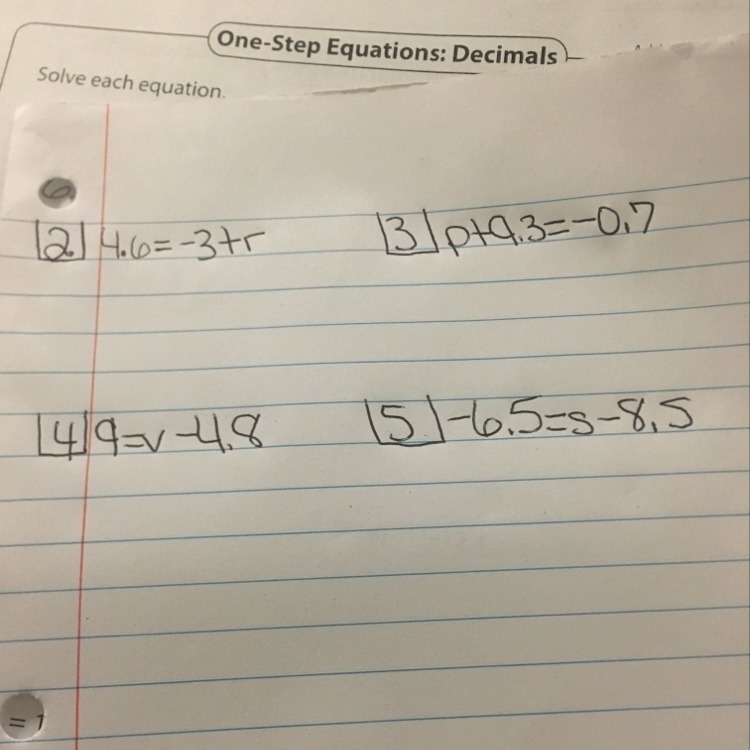 One-Step Equations: Decimals
Solve each equation.
2 4.6=-3+r
3 p+9.3=-0.7
4 9=v-4.8
5 -6.5=s-8.5
= 1